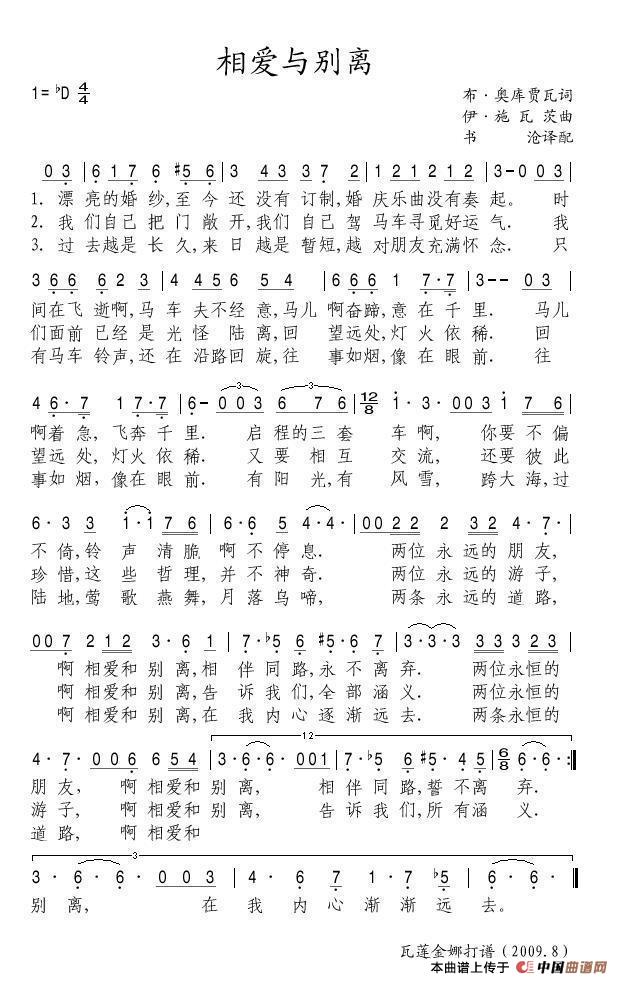 相爱与别离
1=♭D 4/4
布·奥库贾瓦词
伊·施瓦茨曲
书 沧译配
0 3 | 6 1 7 6 #5 6 | 3 4 3 3 7 2 | 1 2 1 2 1 2 | 3 - 0 0 3 |
1. 漂亮的婚纱,至今还没有订制,婚庆乐曲没有奏起。时
2. 我们自己把门敞开,我们自己驾马车寻觅好运气.我
3. 过去越是长久,来日越是暂短,越对朋友充满怀念.只
3 6 6 6 2 3 | 4 #5 4 6 5 4 | 3 6 6 6 2 1 7·7 | 3 - - 0 3 |
间在飞逝啊,马车夫不经意,马儿啊奋蹄,意在千里.马儿
们面前已经是光怪陆离,回望远处,灯火依稀.回
有马车铃声,还在沿路回旋,往事如烟,像在眼前.往
4 6·7 1 7·7 | 6 - 0 0 3 6 7 6 | 12/8 1·3·0 0 3 1 7 1 |
啊着急,飞奔千里.启程的三套车啊,你要不偏
望远处,灯火依稀.又要相互交流,还要彼此
事如烟,像在眼前.有阳光,有风雪,跨大海,过
6·3 3 1·1 7 6 | 6·6 5 4·4· | 0 0 2 2 2 2 3 2 4·7· |
不倚,铃声清脆啊不停息.两位永远的朋友,
珍惜,这些哲理,并不神奇.两位永远的游子,
陆地,莺歌燕舞,月落乌啼,两条永远的道路,
0 0 7 2 1 2 3·6 1 | 7·♭5 6 #5·6 7 | 3·3·3 3 3 3 2 3 |
啊相爱和别离,相伴同路,永不离弃.两位永恒的
啊相爱和别离,告诉我们,全部涵义.两位永恒的
啊相爱和别离,在我内心逐渐远去.两条永恒的
12
4·7·0 0 6 6 5 4 | 3·6·6·0 0 1 | 7·♭5 6 #5·4 5 | 6/8 6·6· :|
朋友,啊相爱和别离,相伴同路,誓不离弃.
游子,啊相爱和别离,告诉我们,所有涵义.
道路,啊相爱和
3
3·6·6·0 0 3 | 4·6 7 1·7 ♭5 | 6·6· |
别离,在我内心渐渐远去。
瓦莲金娜打谱(2009.8)
本曲谱上传于 中国曲谱网